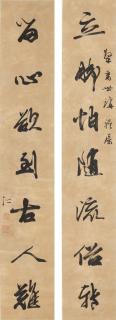 立腳怕隨流俗轉
留心欲到古人難